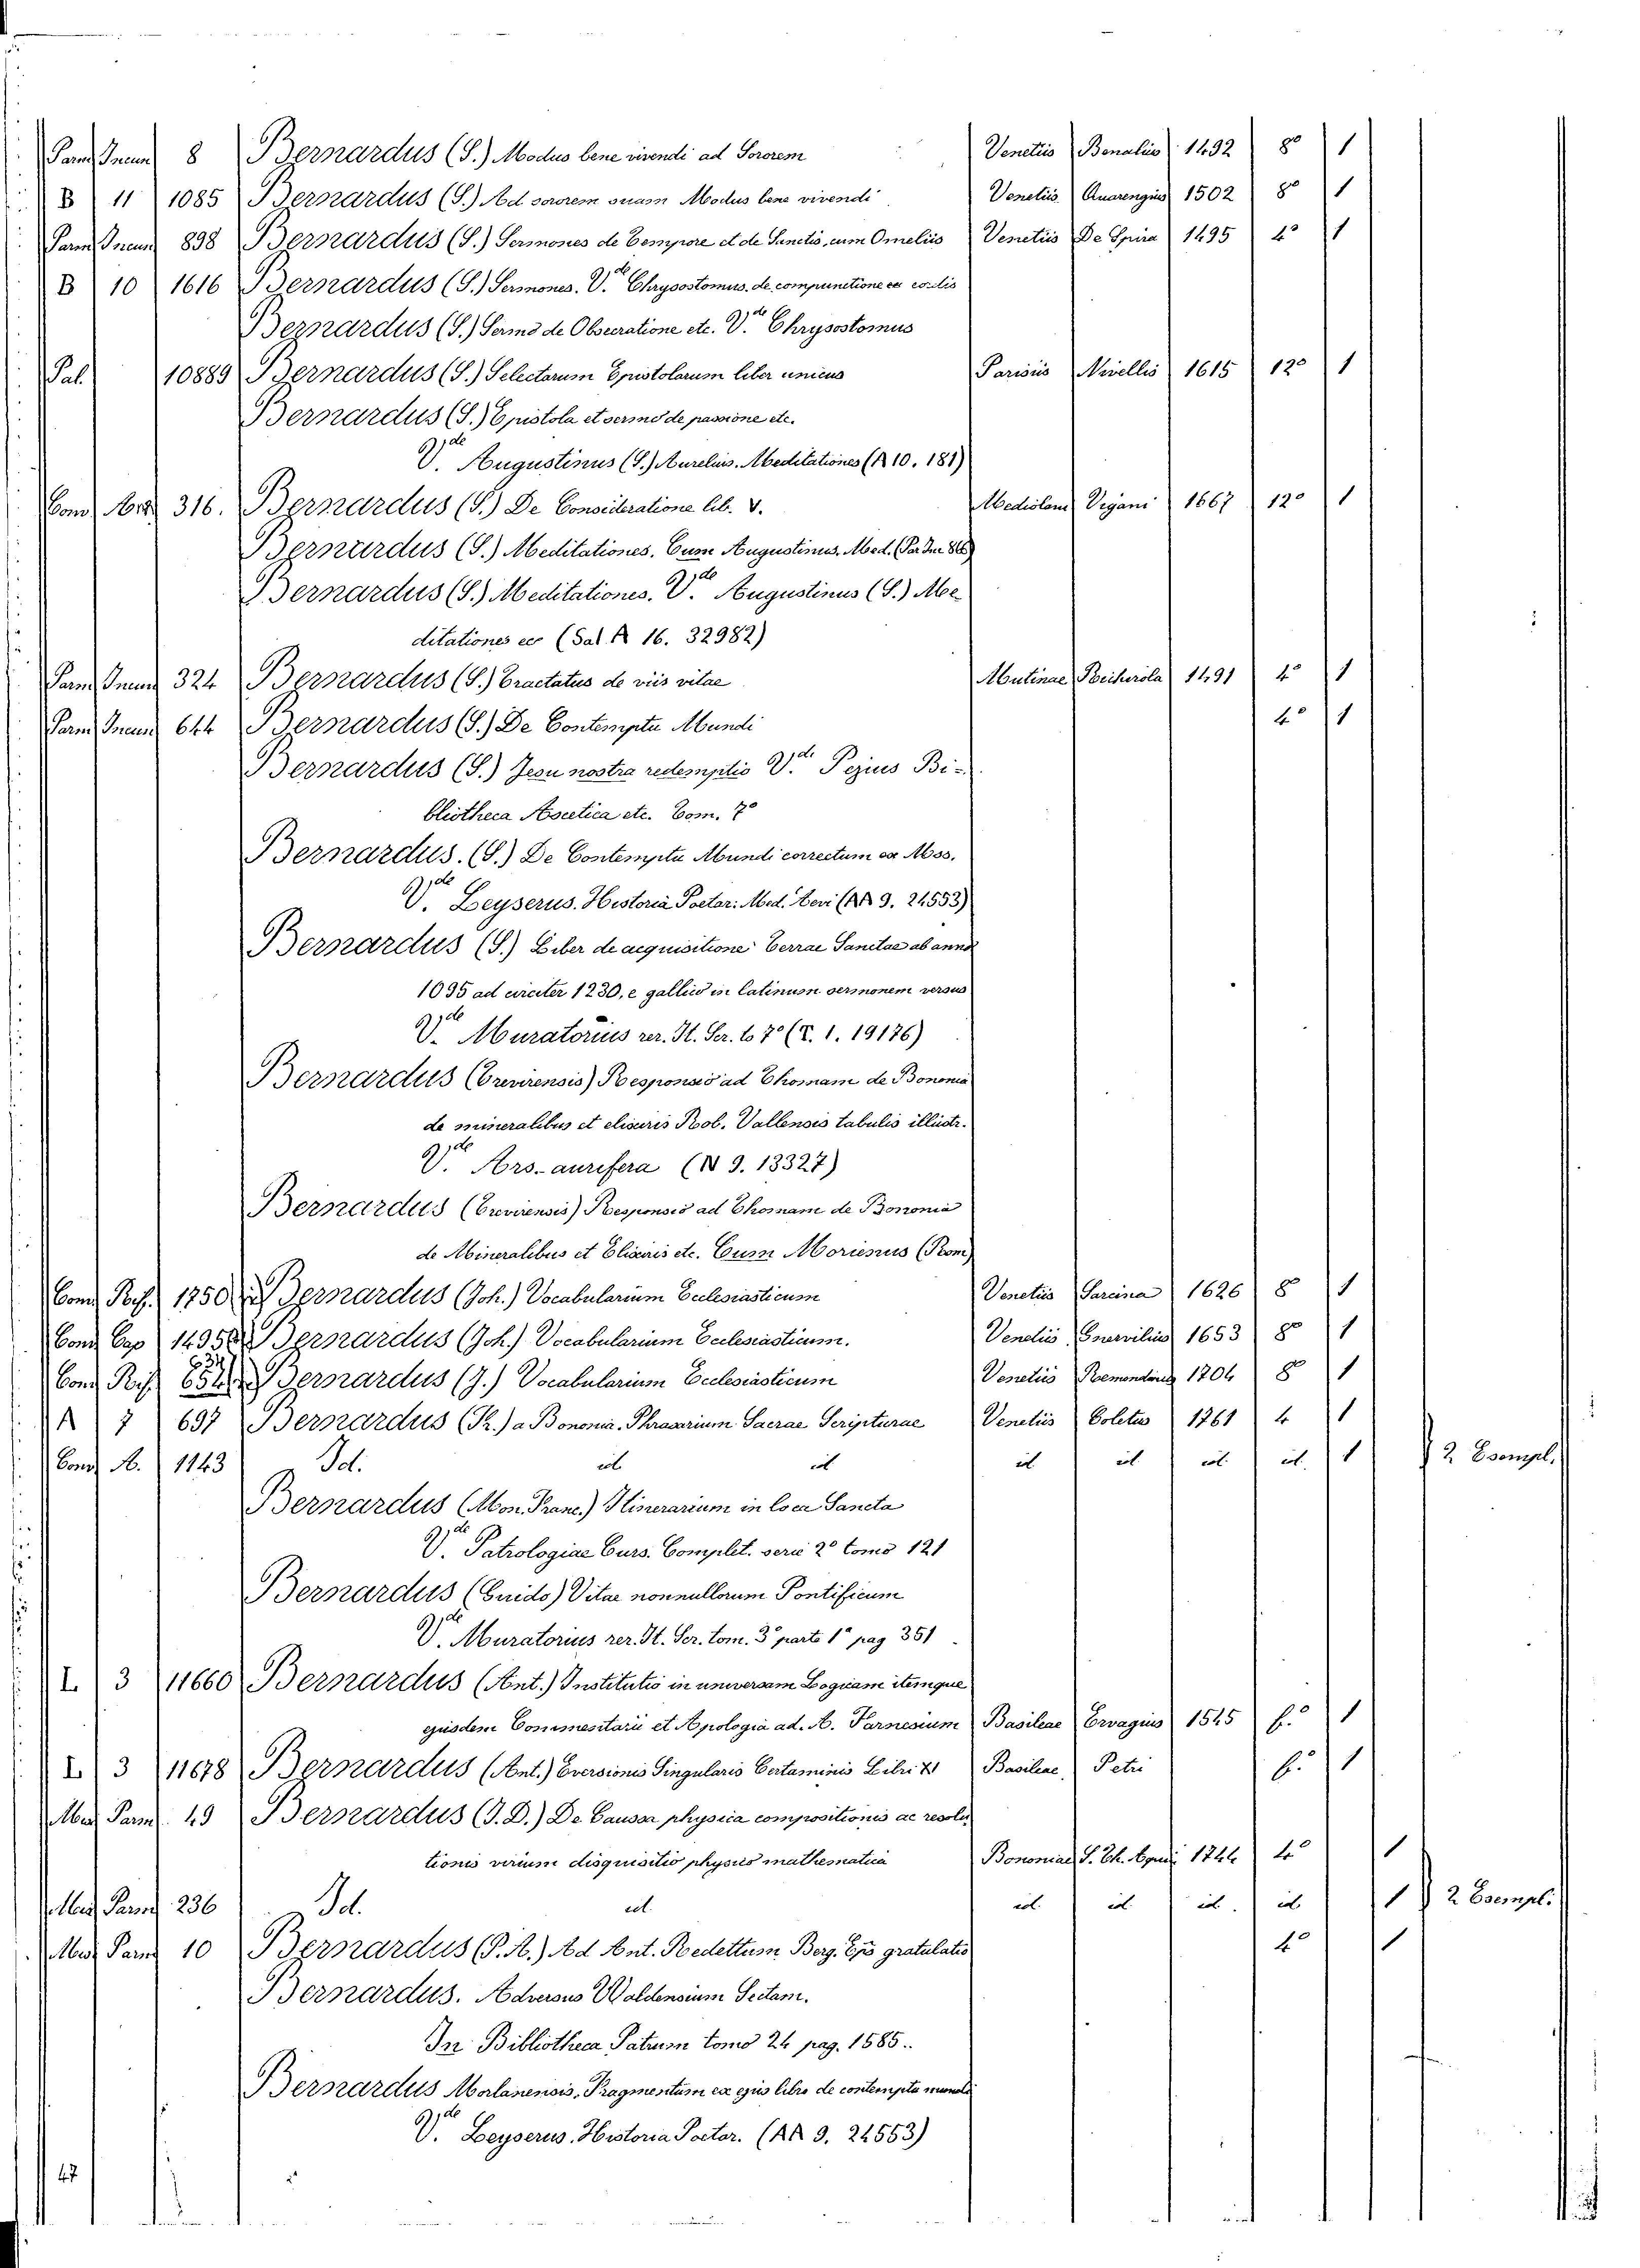 Parm Incun 8 Bernardus (S.) Modus bene vivendi ad Sororem Venetiis Benalius 1492 8° 1
B 11 1085 Bernardus (S.) Ad sororem suam Modus bene vivendi Venetiis Quarengius 1502 8° 1
Parm Incun 898 Bernardus (S.) Sermones de Tempore et de Sanctis, cum Omeliis Venetiis De Spira 1495 4° 1
B 10 1616 Bernardus (S.) Sermones. V.de Chrysostomus. de compunctione cordis
Bernardus (S.) Sermo de Obsecratione etc. V.de Chrysostomus
Pal. 10889 Bernardus (S.) Selectarum Epistolarum liber unicus Parisiis Nivellis 1615 12° 1
Bernardus (S.) Epistola et sermo de passione etc.
V.de Augustinus (S.) Aurelius. Meditationes (A 10. 181)
Conv 316. Bernardus (S.) De Consideratione lib. V. Mediolani Vigani 1667 12° 1
Bernardus (S.) Meditationes. Cum Augustinus. Med.
Bernardus (S.) Meditationes. V.de Augustinus (S.) Me
ditationes ec (Sal. A 16. 32982)
Parm Incun 324 Bernardus (S.) Tractatus de viis vitae Mutinae Richizola 1491 4° 1
Parm Incun 644 Bernardus (S.) De Contemptu Mundi 4° 1
Bernardus (S.) Jesu nostra redemptio V.de Pezius Bi-
bliotheca Ascetica etc. Tom. 7°
Bernardus. (S.) De Contemptu Mundi correctum ex Mss.
V.de Leyserus. Historia Poetar. Med. Aevi (AA 9. 24553)
Bernardus (S.) Liber de acquisitione Terrae Sanctae ab anno
1095 ad circiter 1230, e gallico in latinum sermonem versus
V.de Muratorius rer. It. Scr. to 7° (T. 1. 19176)
Bernardus (Trevirensis) Responsio ad Thomam de Bononia
de mineralibus et elixiris Rob. Vallensis tabulis illustr.
V.de Ars-aurifera (N 9. 13327)
Bernardus (Trevirensis) Responsio ad Thomam de Bononia
de Mineralibus et Elixiris etc. Cum Morienus (Rom)
Conv Rif. 1750 Bernardus (Joh.) Vocabularium Ecclesiasticum Venetiis Sarcina 1626 8° 1
Conv Cap 1495 Bernardus (Joh.) Vocabularium Ecclesiasticum. Venetiis Gnervilius 1653 8° 1
Conv Rif. Bernardus (J.) Vocabularium Ecclesiasticum Venetiis Remondini 1704 8° 1
A 7 697 Bernardus (Fr.) a Bononia. Phrasarium Sacrae Scripturae Venetiis Coletus 1761 4 1
Conv A. 1143 Id. id id id id id. id. 1 2 Esempl.
Bernardus (Mon. Franc.) Itinerarium in loca Sancta
V.de Patrologiae Curs. Complet. serie 2° tomo 121
Bernardus (Guido) Vitae nonnullorum Pontificum
V.de Muratorius rer. It. Scr. tom. 3° parte 1ª pag 351.
L 3 11660 Bernardus (Ant.) Institutio in universam Logicam itemque
ejusdem Commentarii et Apologia ad. A. Farnesium Basileae Ervagius 1545 f.° 1
L 3 11678 Bernardus (Ant.) Eversionis Singularis Certaminis Libri XL Basileae Petri f.° 1
Parm 49 Bernardus (J. D.) De Caussa physica compositionis ac resolu
tionis virium disquisitio physico mathematica Bononiae S. Th. Aquin 1744 4° 1
Parm 236 Id. id. id. id. id. id. 1 2 Esempl.
Parm 10 Bernardus (P. A.) Ad Ant. Redettum Berg. Epō gratulatio 4° 1
Bernardus. Adversus Waldensium Sectam.
In Bibliotheca Patrum tomo 24 pag. 1585.
Bernardus Morlanensis. Fragmentum ex ejus libro de contemptu mundi
V.de Leyserus. Historia Poetar. (AA 9. 24553)
47